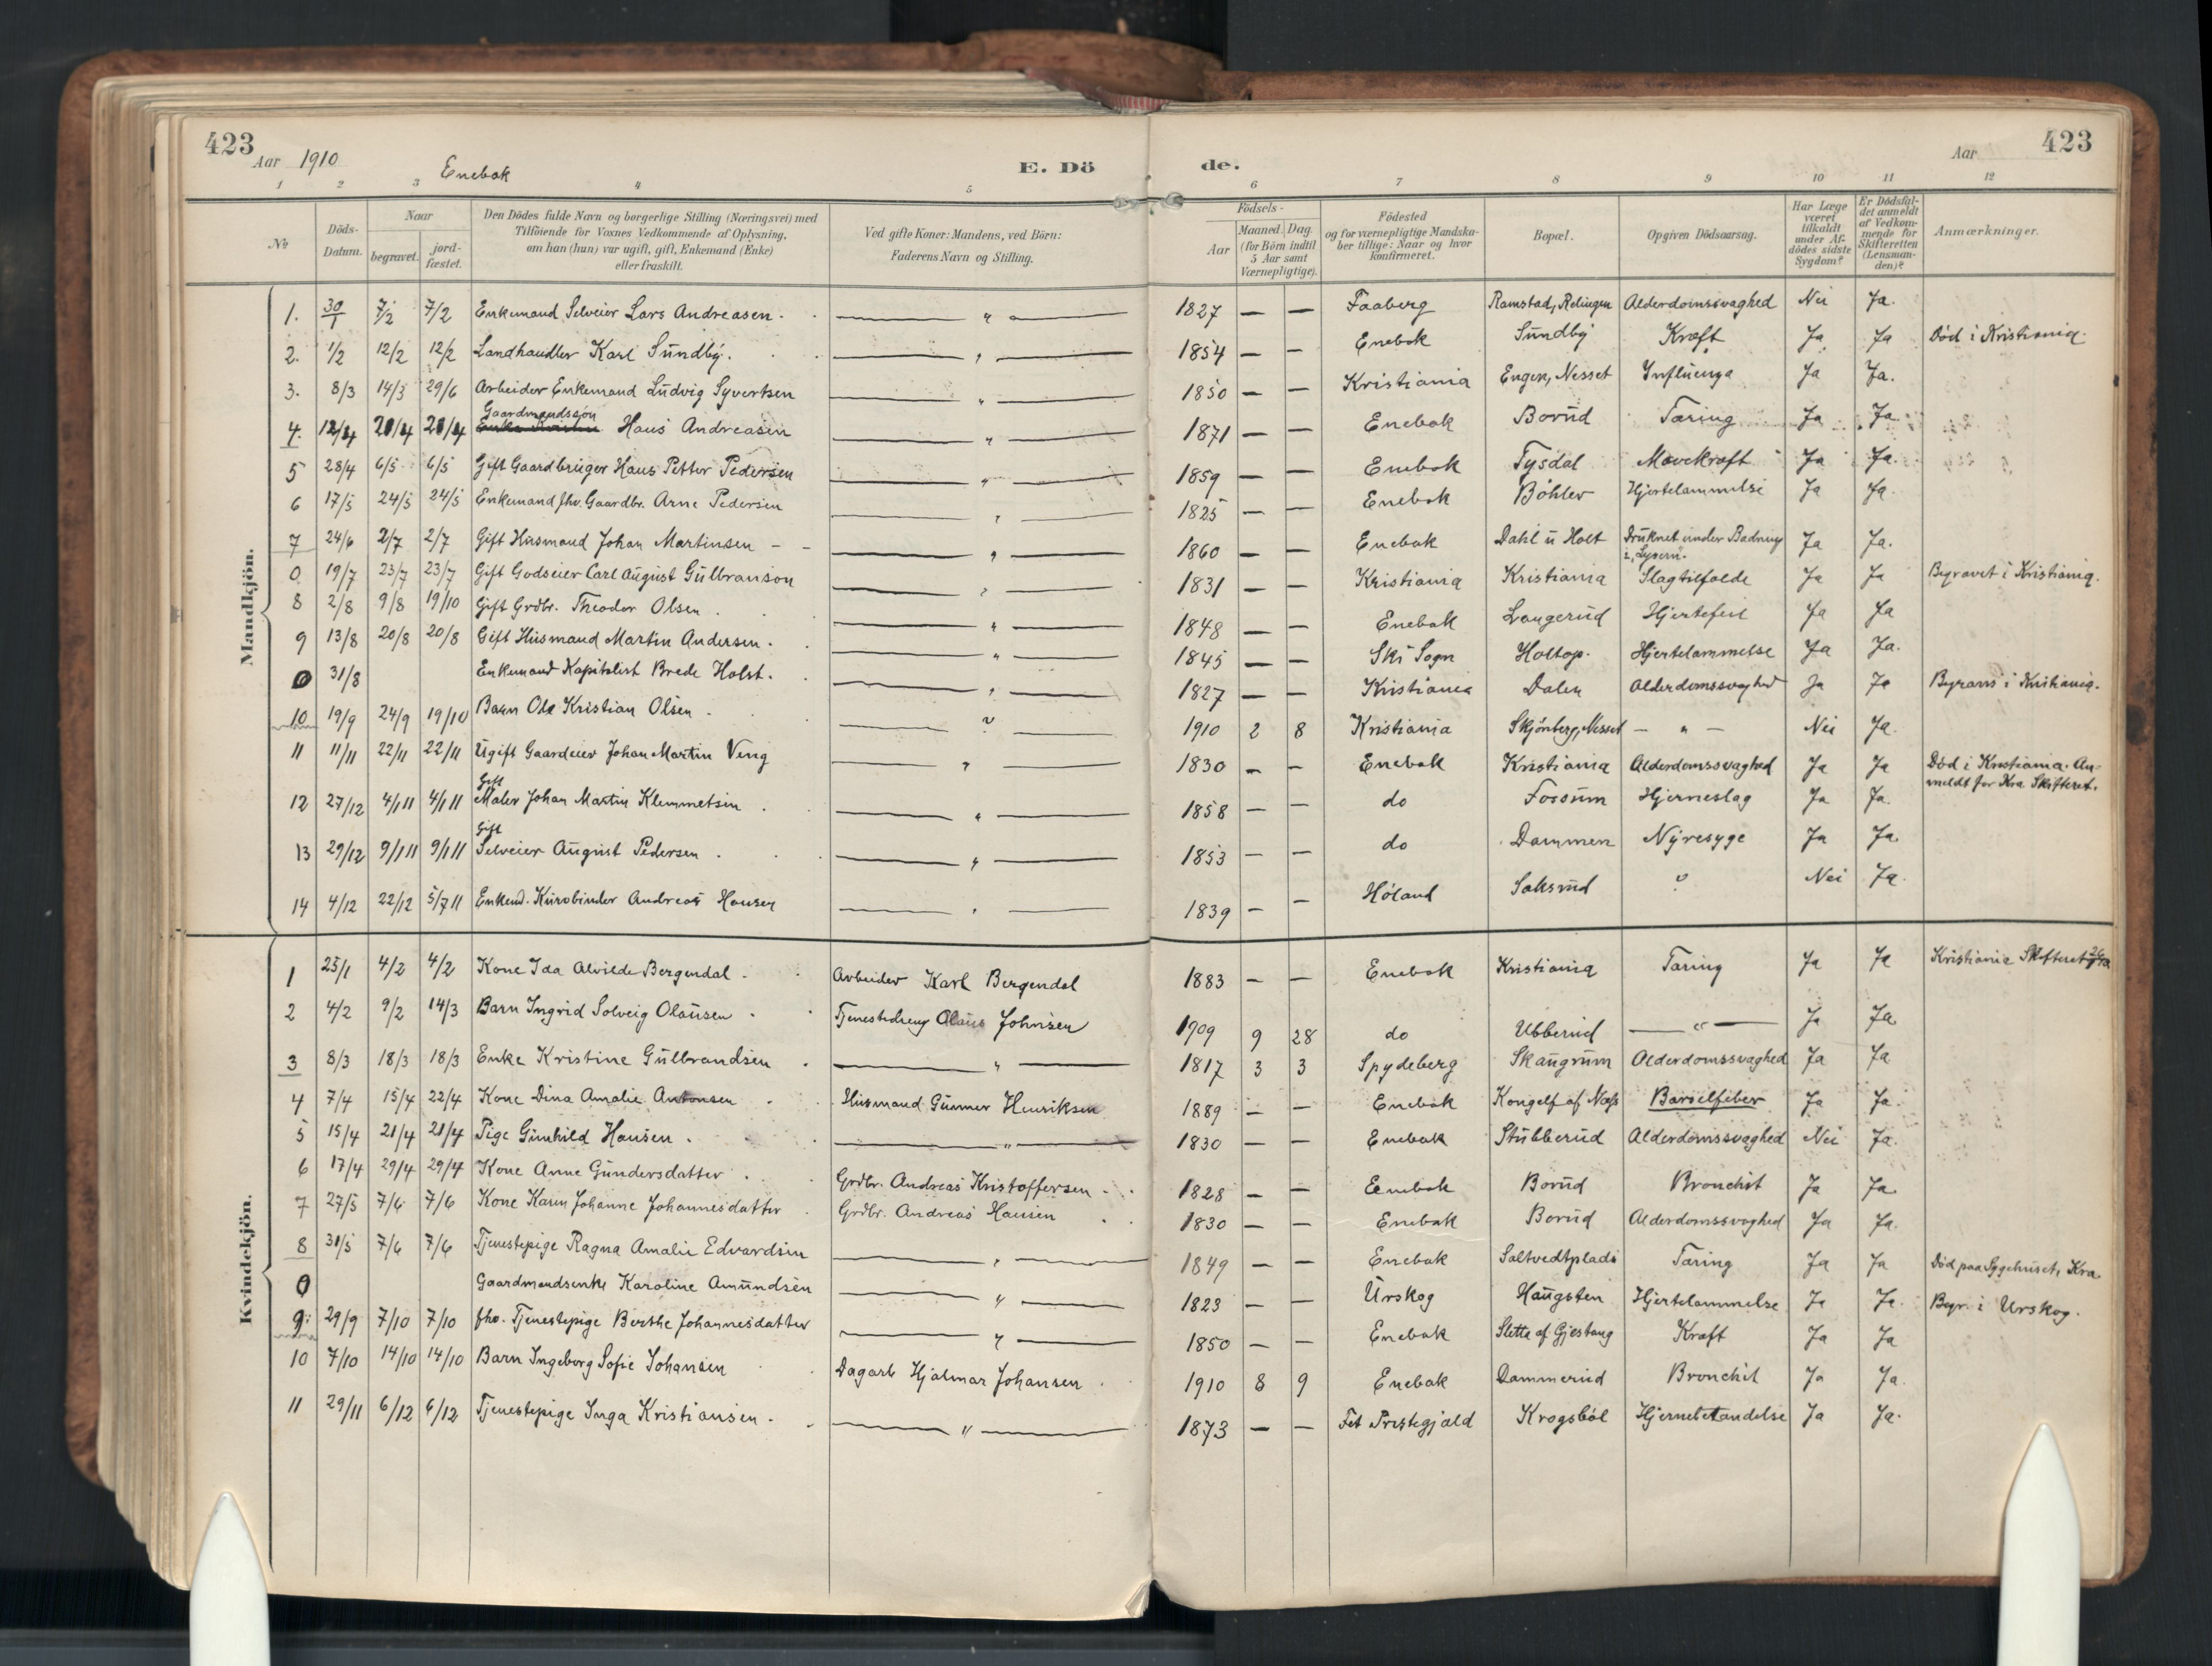 423
Aar 1910
Enebak
E. Dö
de.
Aar
423
1 2 3 4 5 6 7 8 9 10 11 12
№
Döds-Datum.
Naar
begravet.
jord-fæstet.
Den Dödes fulde Navn og borgerlige Stilling (Næringsvei) med
Tilföiende for Voxnes Vedkommende af Oplysning,
om han (hun) var ugift, gift, Enkemand (Enke)
eller fraskilt.
Ved gifte Koner: Mandens, ved Börn:
Faderens Navn og Stilling.
Födsels-
Aar
Maaned. Dag.
(for Börn indtil
5 Aar samt
Værnepligtige).
Födested
og for værnepligtige Mandska-
ber tillige: Naar og hvor
konfirmeret.
Bopæl.
Opgiven Dödsaarsag.
Har Læge
været
tilkaldt
under Af-
dödes sidste
Sygdom?
Er Dödsfal-
det anmeldt
af Vedkom-
mende for
Skifteretten
(Lensman-
den)?
Anmærkninger.
Mandkjön.
1. 30/1 7/2 7/2 Enkemand Selveier Lars Andreasen. " 1827 — — Faaberg Ramstad, Relingen Alderdomssvaghed Nei Ja.
2. 1/2 12/2 12/2 Landhandler Karl Sundby. " 1854 — — Enebak Sundby Kræft Ja Ja Död i Kristiania.
3. 8/3 14/3 29/6 Arbeider Enkemand Ludvig Syvertsen " 1850 — — Kristiania Engen, Nesset Influenza Ja Ja.
Gaardmandssön
4. 12/4 20/4 20/4 Hans Andreasen " 1871 — — Enebak Borud Tæring Ja Ja
5 28/4 6/5 6/5 Gift Gaardbruger Hans Petter Pedersen " 1859 — — Enebak Tysdal Mavekræft Ja Ja.
6 17/5 24/5 24/5 Enkemand fhv. Gaardbr. Arne Pedersen " 1825 — — Enebak Böhler Hjertelammelse Ja Ja.
7 24/6 2/7 2/7 Gift Husmand Johan Martinsen " 1860 — — Enebak Dahl u Holt Druknet under Badning Ja Ja.
i "Lyseru".
0 19/7 23/7 23/7 Gift Godseier Carl August Gulbranson " 1831 — — Kristiania Kristiania Slagtilfælde Ja Ja Begravet i Kristiania.
8 2/8 9/8 19/10 Gift Grdbr. Theodor Olsen. " 1848 — — Enebak Langerud Hjertefeil Ja Ja
9 13/8 20/8 20/8 Gift Husmand Martin Andersen. " 1845 — — Ski Sogn Holtop. Hjertelammelse Ja Ja.
0 31/8 Enkemand Kapitalist Brede Holst. " 1827 — — Kristiania Dalen Alderdomssvaghed Ja Ja i Kristiania.
10 19/9 24/9 19/10 Barn Ole Kristian Olsen ? 1910 2 8 Kristiania Skjönberg, Nesset — " — Nei Ja.
11 11/11 22/11 22/11 Ugift Gaardeier Johan Martin Veng " 1830 — — Enebak Kristiania Alderdomssvaghed Ja Ja Död i Kristiania. An-
meldt for Kra Skifteret.
Gift
12 27/12 4/1 11 4/1 11 Maler Johan Martin Klemmetsen " 1858 — — do Fossum Hjerneslag Ja Ja.
Gift
13 29/12 9/1 11 9/1 11 Selveier August Pedersen " 1853 — — do Dammen Nyresyge Ja Ja.
14 4/12 22/12 5/7 11 Enkemd. Kurvbinder Andreas Hansen " 1839 — — Höland Saksrud ? Nei Ja.
Kvindekjön.
1 25/1 4/2 4/2 Kone Ida Alvilde Bergendal. Arbeider Karl Bergendal 1883 — — Enebak Kristiania Tæring Ja Ja Kristiania Skifteret
2 4/2 9/2 14/3 Barn Ingrid Solveig Olausen Tjenestedreng Olaus Johnsen 1909 9 28 do Ubberud — " — Ja Ja
3 8/3 18/3 18/3 Enke Kristine Gulbrandsen " 1817 3 3 Spydeberg Skaugrum Alderdomssvaghed Ja Ja
4 7/4 15/4 22/4 Kone Dina Amalie Antonsen Husmand Gunner Henriksen 1889 — — Enebak Kongelf af Næss Barselfeber Ja Ja.
5 15/4 21/4 21/4 Pige Gunhild Hansen. " 1830 — — Enebak Stubberud Alderdomssvaghed Nei Ja.
6 17/4 29/4 29/4 Kone Anne Gundersdatter Grdbr. Andreas Kristoffersen 1828 — — Enebak Borud Bronchit Ja Ja.
7 27/5 7/6 7/6 Kone Karen Johanne Johannesdatter Grdbr. Andreas Hansen 1830 — — Enebak Borud Alderdomssvaghed Ja Ja.
8 31/5 7/6 7/6 Tjenestepige Ragna Amalie Edvardsen " 1849 — — Enebak Saltvedtplads Tæring Ja Ja Död paa Sygehuset, Kra
0 Gaardmandsenke Karoline Amundsen " 1823 — — Urskog Haugsten Hjertelammelse Ja Ja. Begr. i Urskog.
9. 29/9 7/10 7/10 fhv. Tjenestepige Berthe Johannesdatter " 1850 — — Enebak Slette af Gjestang Kræft Ja Ja
10 7/10 14/10 14/10 Barn Ingeborg Sofie Johansen Dagarb Hjalmar Johansen 1910 8 9 Enebak Dammerud Bronchit Ja Ja.
11 29/11 6/12 6/12 Tjenestepige Inga Kristiansen. " 1873 — — Fet Prestegjæld Krogsböl Hjernebetændelse Ja Ja.